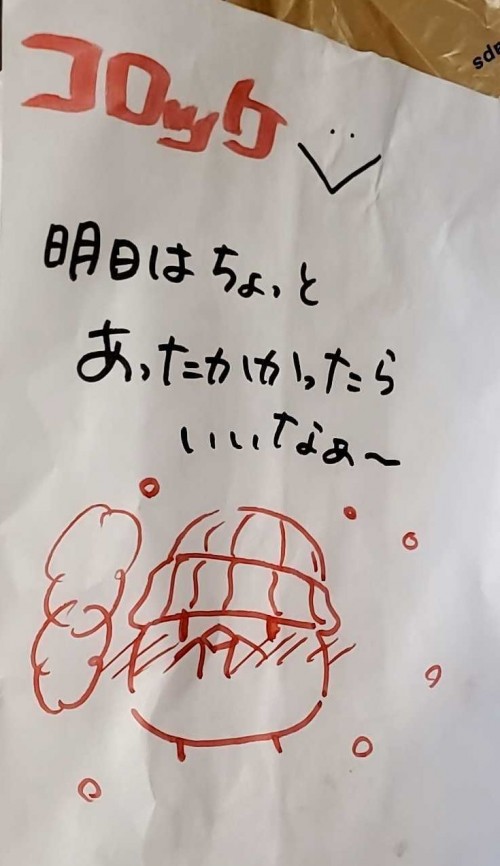 コロッケ
明日はちょっと
あったかかったら
いいなぁ〜